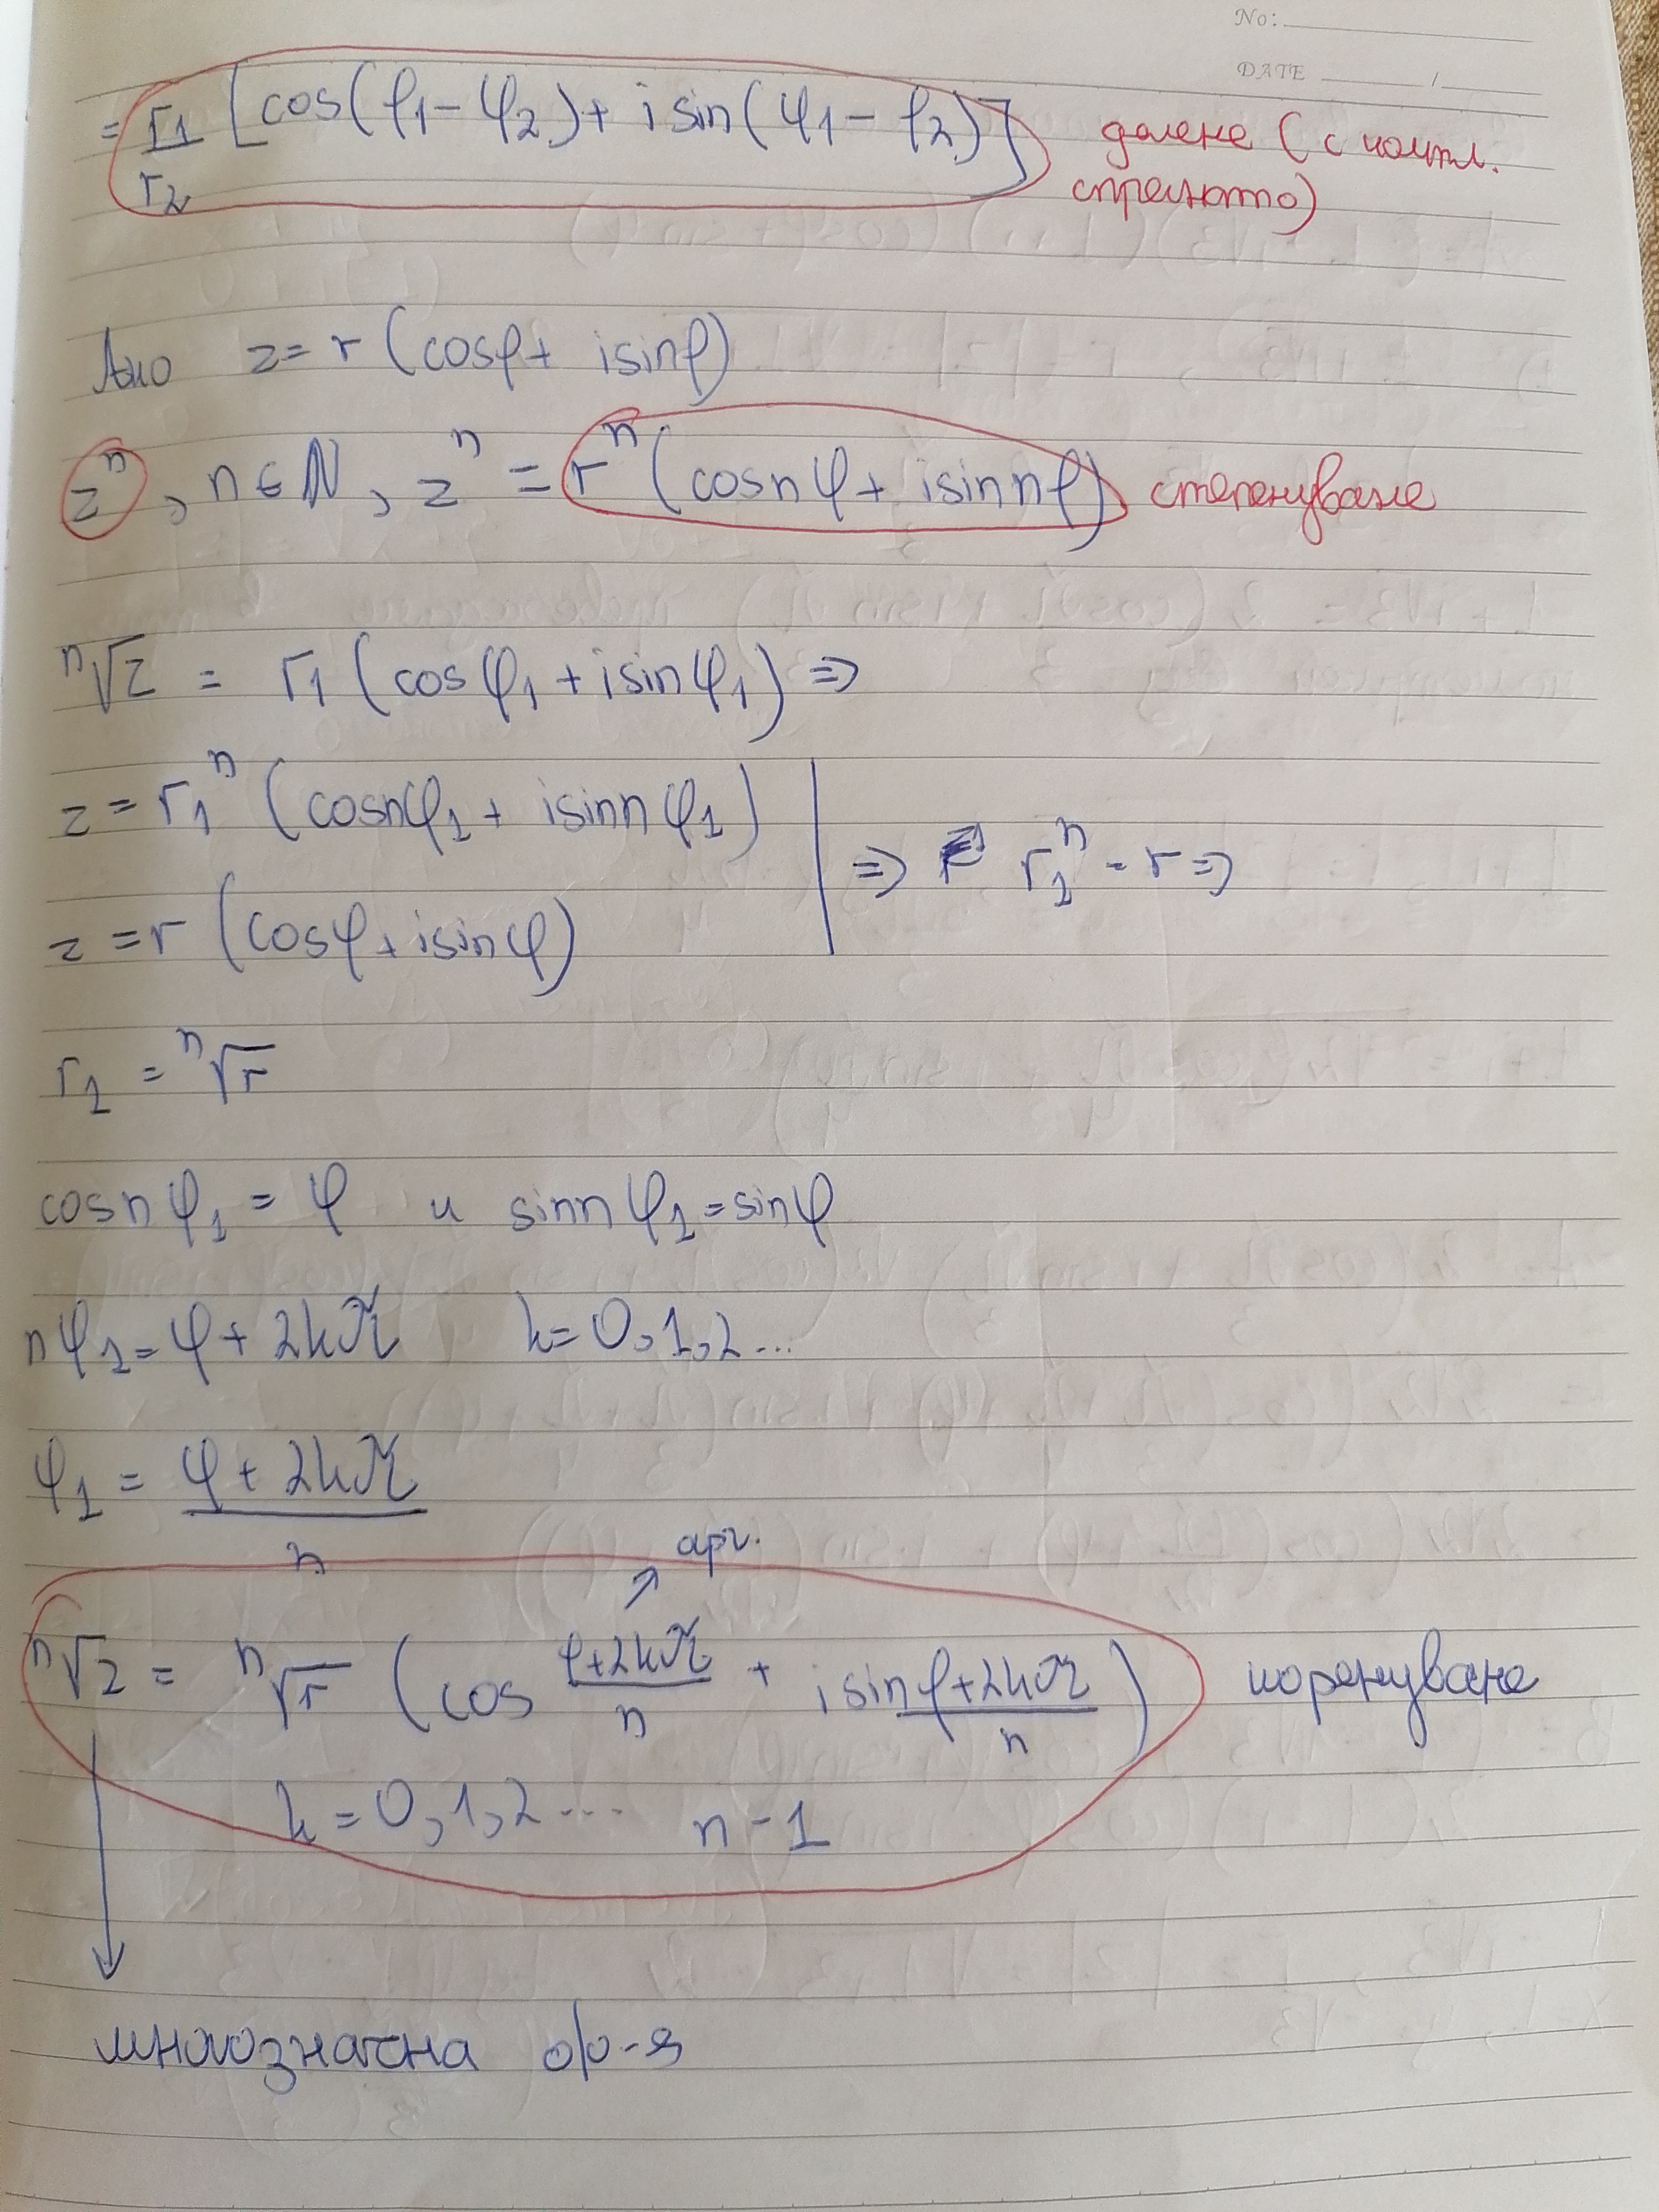 No:
DATE /
= r1/r2 [cos(φ1-φ2)+ i sin(φ1-φ2)] делене (с компл.
спрегнато)
Ако z=r(cosφ+ isinφ)
zⁿ, n∈ℕ, zⁿ = rⁿ(cosnφ+ isinnφ) степенуване
ⁿ√z = r1(cosφ1+isinφ1) ⇒
z=r1ⁿ (cosnφ1+ isinnφ1)
⇒ r1ⁿ = r ⇒
z=r(cosφ+isinφ)
r1 = ⁿ√r
cosnφ1 = φ и sinnφ1=sinφ
nφ1=φ+2kπ k=0,1,2...
φ1 = (φ+2kπ)/n
арг.
ⁿ√z = ⁿ√r (cos (φ+2kπ)/n + isin (φ+2kπ)/n) коренуване
k=0,1,2... n-1
многозначна ф-я